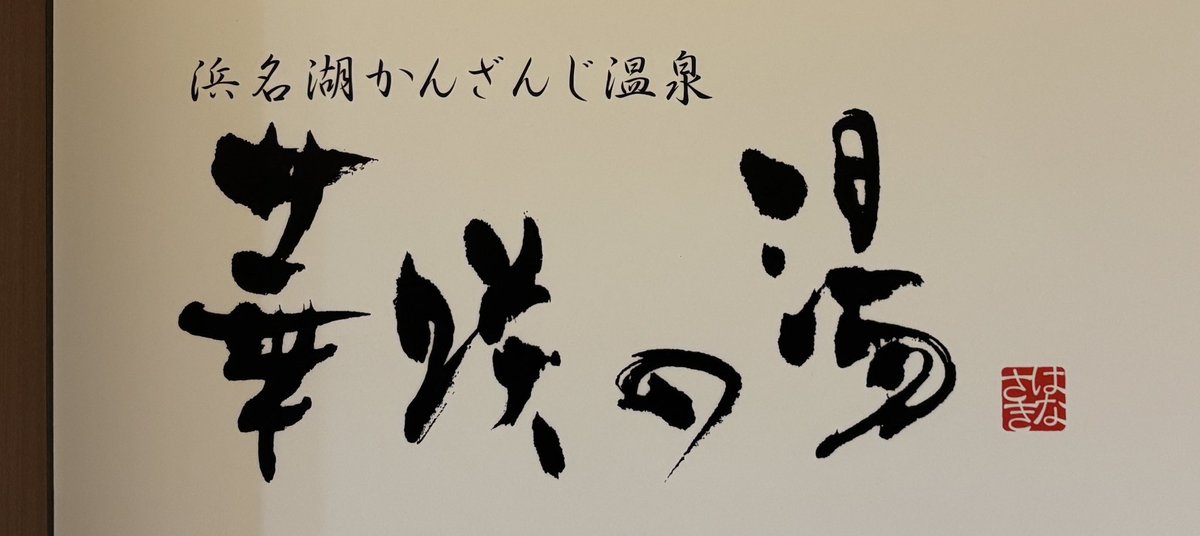 浜名湖かんざんじ温泉
華咲の湯
はなさき